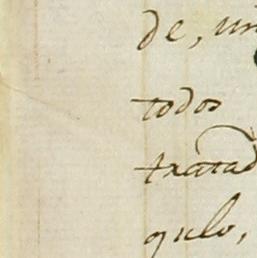 de, un
todos
tratad
qulo,